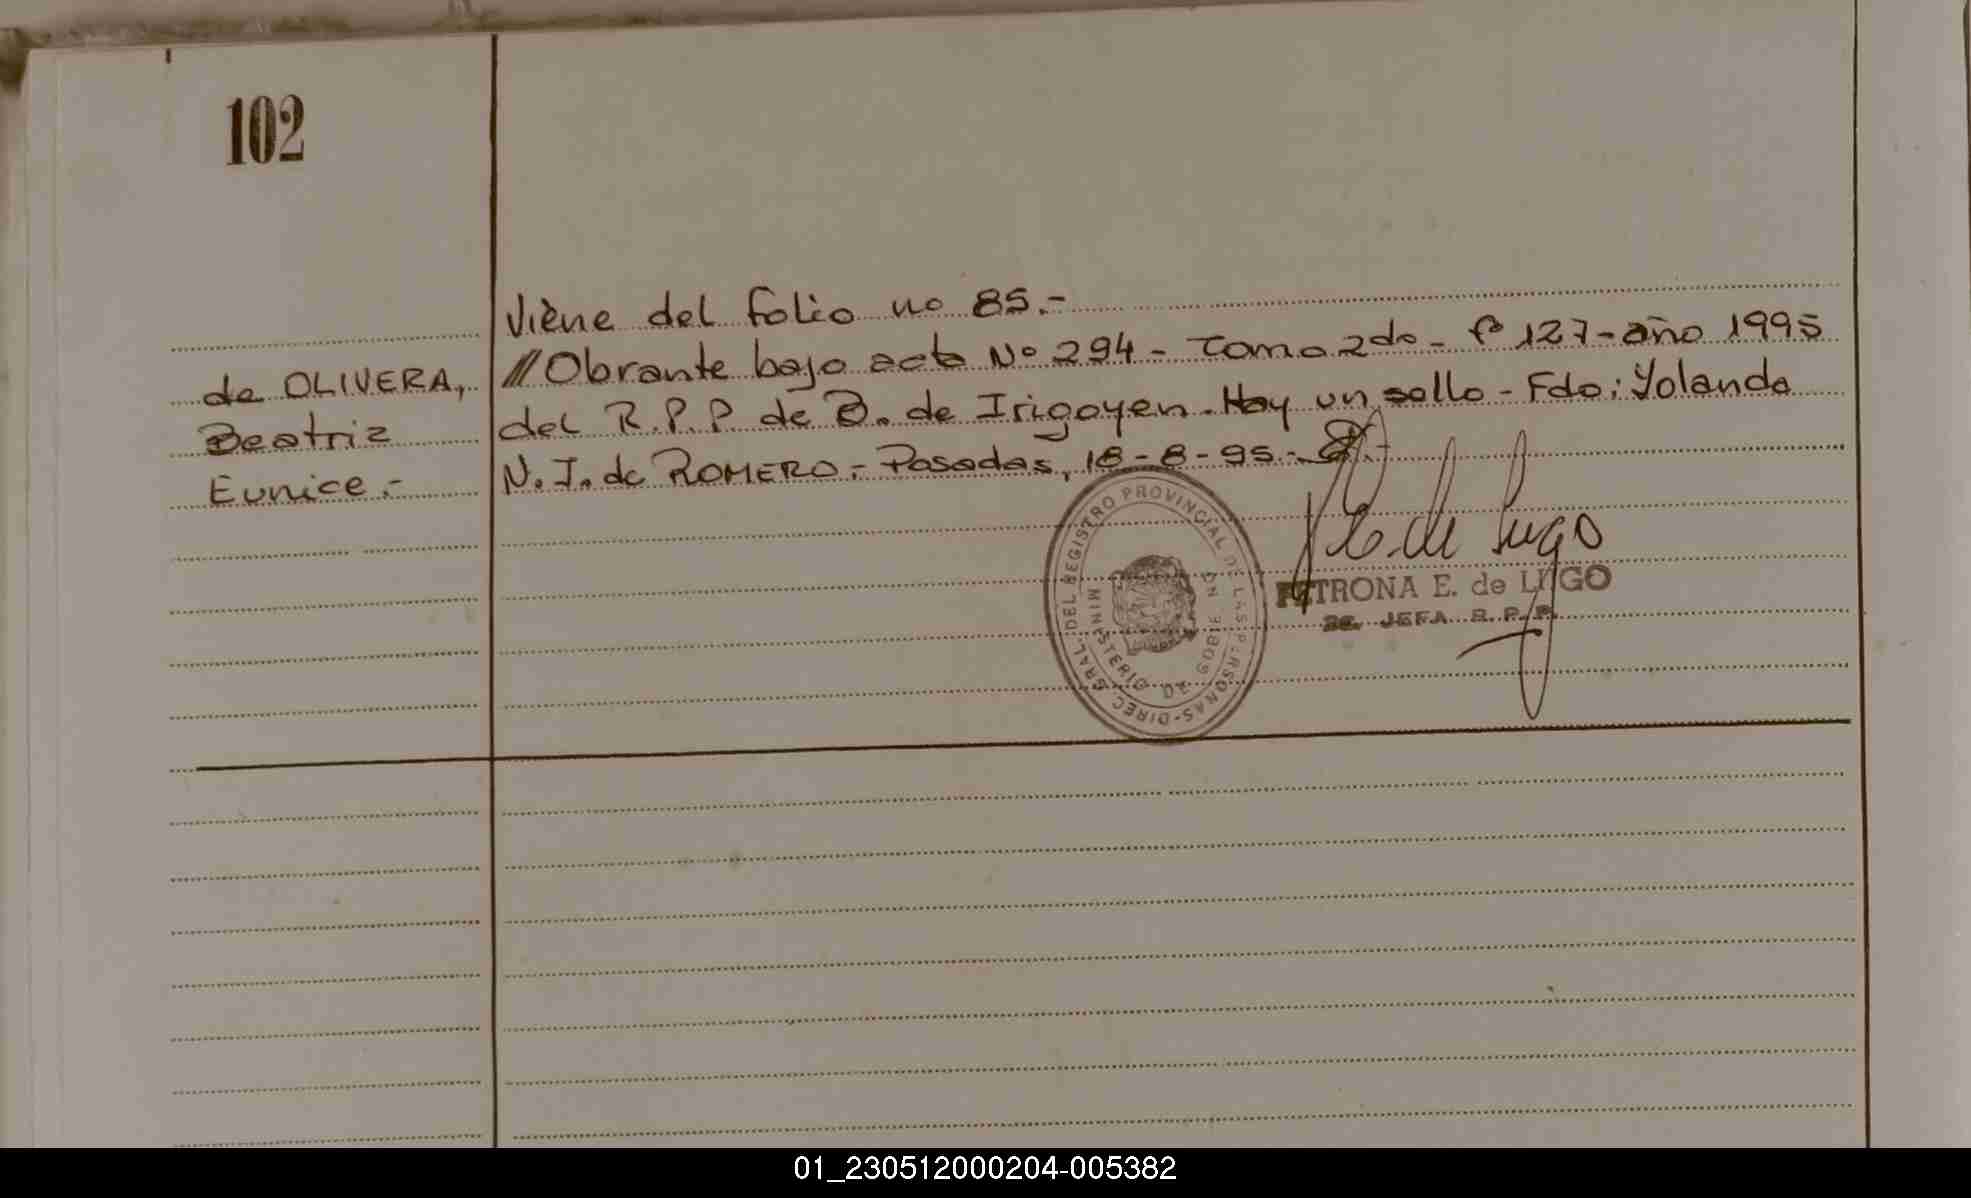 102
Viene del folio no 85.-
de OLIVERA,
Beatriz
Eunice.-
//Obrante bajo acta Nº 294 - Tomo 2do - fº 127 - año 1995
del R.P.P. de B. de Irigoyen. Hay un sello - Fdo: Yolanda
N. J. de ROMERO.- Posadas, 18-8-95.-
DIREC. GRAL. DEL REGISTRO PROVINCIAL DE LAS PERSONAS
MINISTERIO DE GOB
P.E. de Lugo
PETRONA E. de LUGO
JEFA R.P.P.
01_230512000204-005382